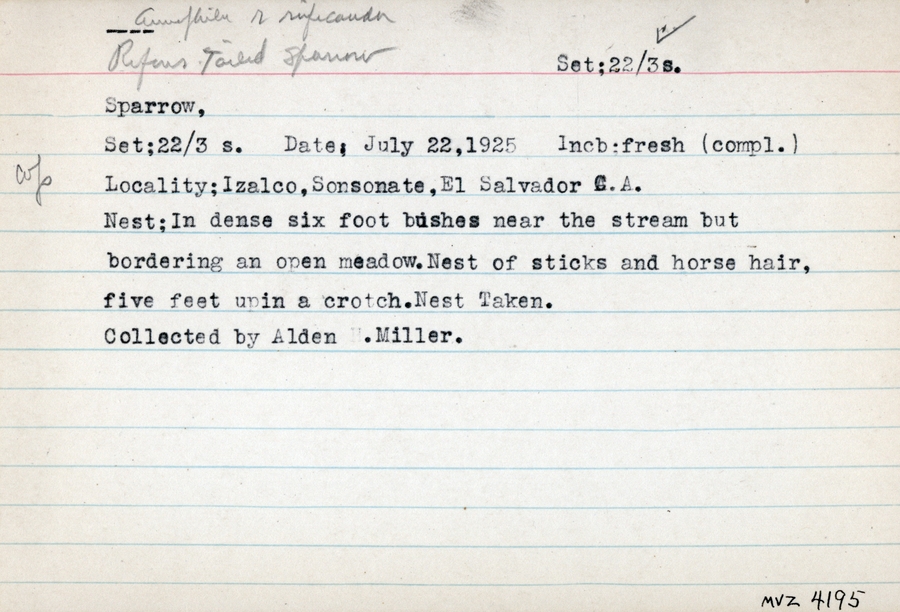 --- Aimophila r rufcauda
Rufous-Tailed Sparrow
Set;22/3s.
Sparrow,
Set;22/3 s. Date; July 22,1925 Incb:fresh (compl.)
Locality;Izalco,Sonsonate,El Salvador C.A.
Nest;In dense six foot bushes near the stream but
bordering an open meadow.Nest of sticks and horse hair,
five feet upin a crotch.Nest Taken.
Collected by Alden H.Miller.
MVZ 4195